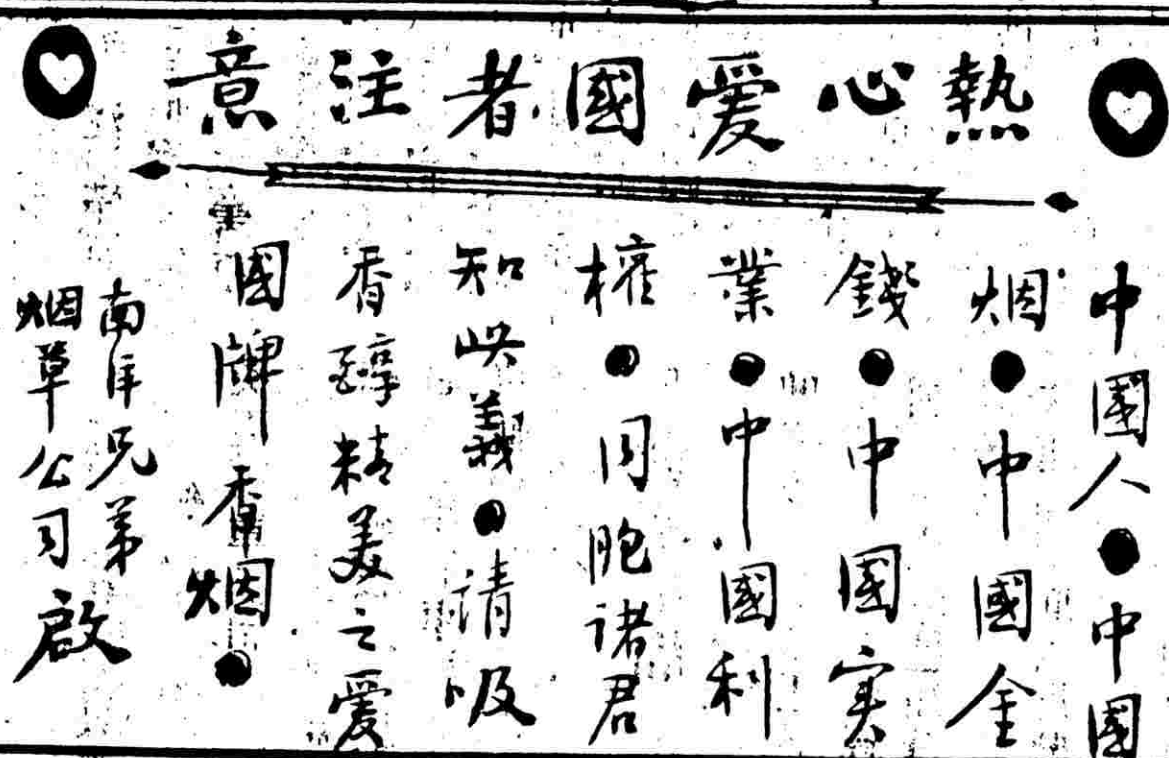 熱心愛國者注意
中國人●中國
烟●中國金
錢●中國实
業●中國利
權●同胞诸君
知此義●請吸
香醇精美之愛
國牌香烟●
南洋兄弟
烟草公司啟